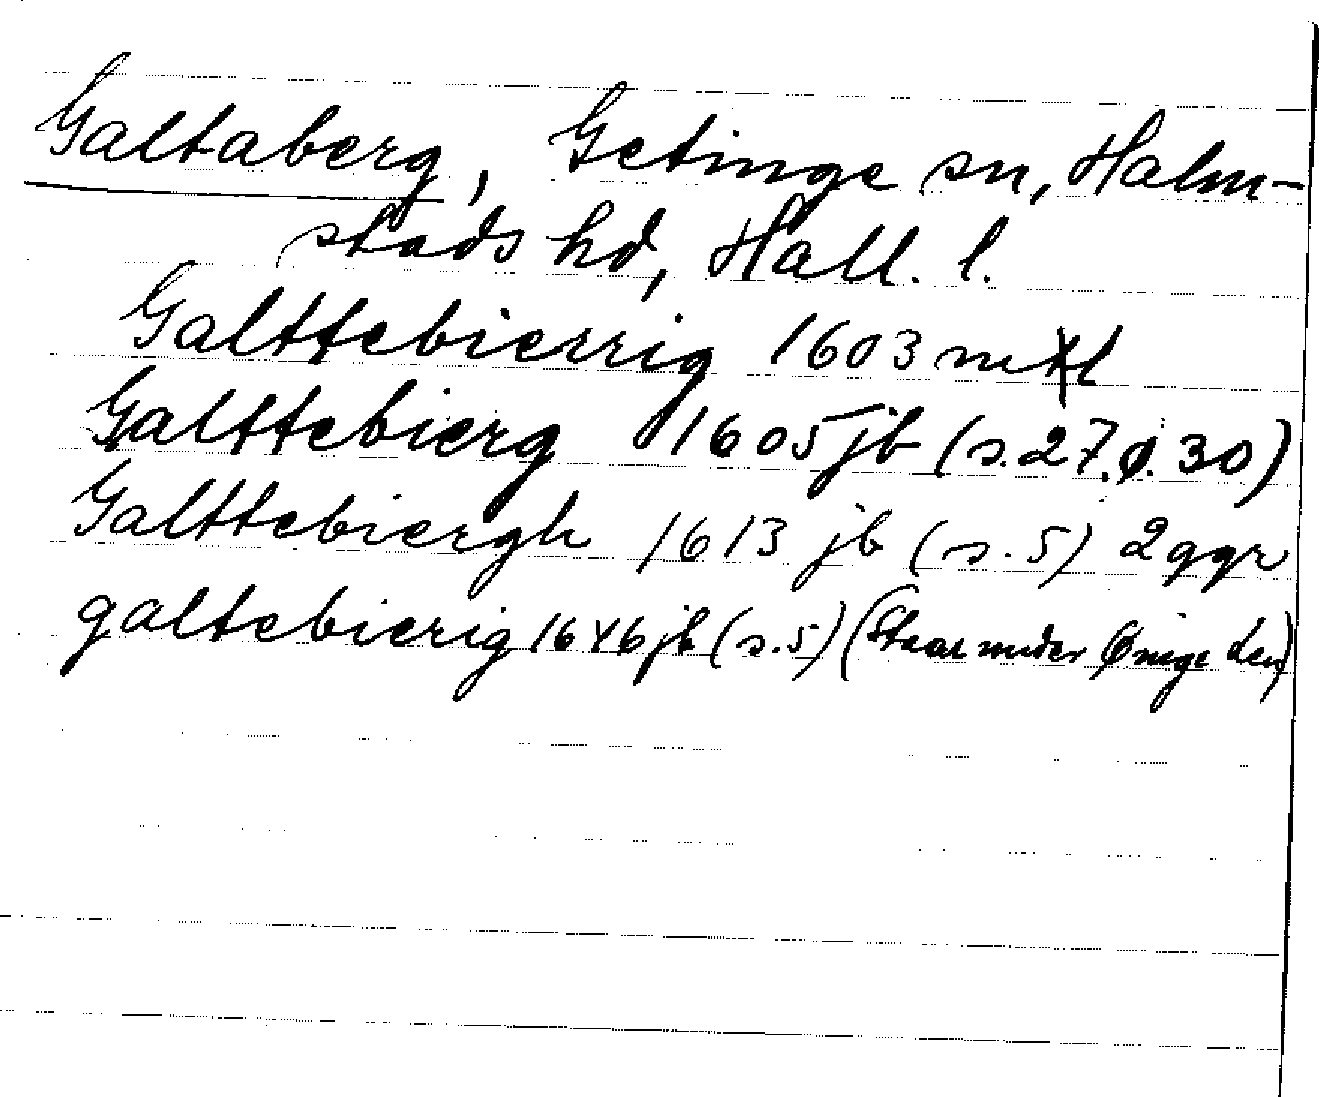 Galtaberg, Getinge sn, Halm-
stads hd, Hall. l.
Galttebierrig 1603 mtl
Galttebierg 1605 jb (s. 27. ø. 30)
Galttebiergh 1613 jb (s. 5) 2 ggr
galtebierig 1646 jb (s. 5) (Staar under Øinge len)